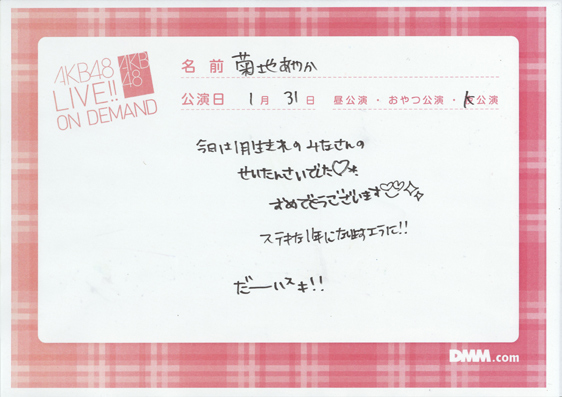 AKB48
LIVE!!
ON DEMAND
AKB
48
名前 菊地あやか
公演日 1月31日 昼公演・おやつ公演・夜公演
今日は1月生まれのみなさんの
せいたんさいでした♡
おめでとうございます
ステキな1年になりますように!!
だーいスキ!!
DMM.com